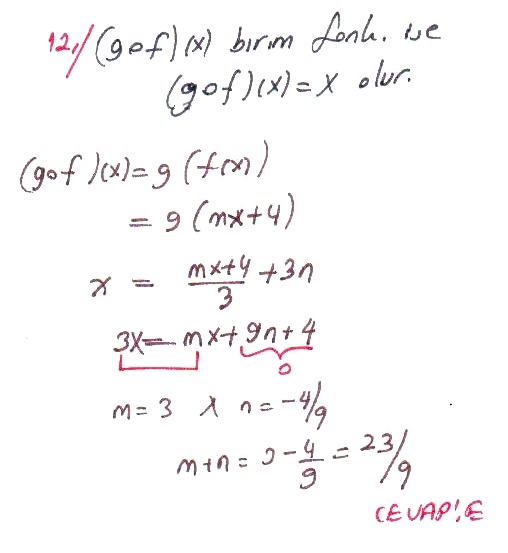 12,/ (gof)(x) birim fonk. ise
(gof)(x) = x olur.
(gof)(x) = g(f(x))
= g(mx+4)
x = \frac{mx+4}{3} + 3n
3x = mx + 9n + 4
0
m = 3 ∧ n = -4/9
m+n = 3 - \frac{4}{9} = 23/9
CEVAP: E